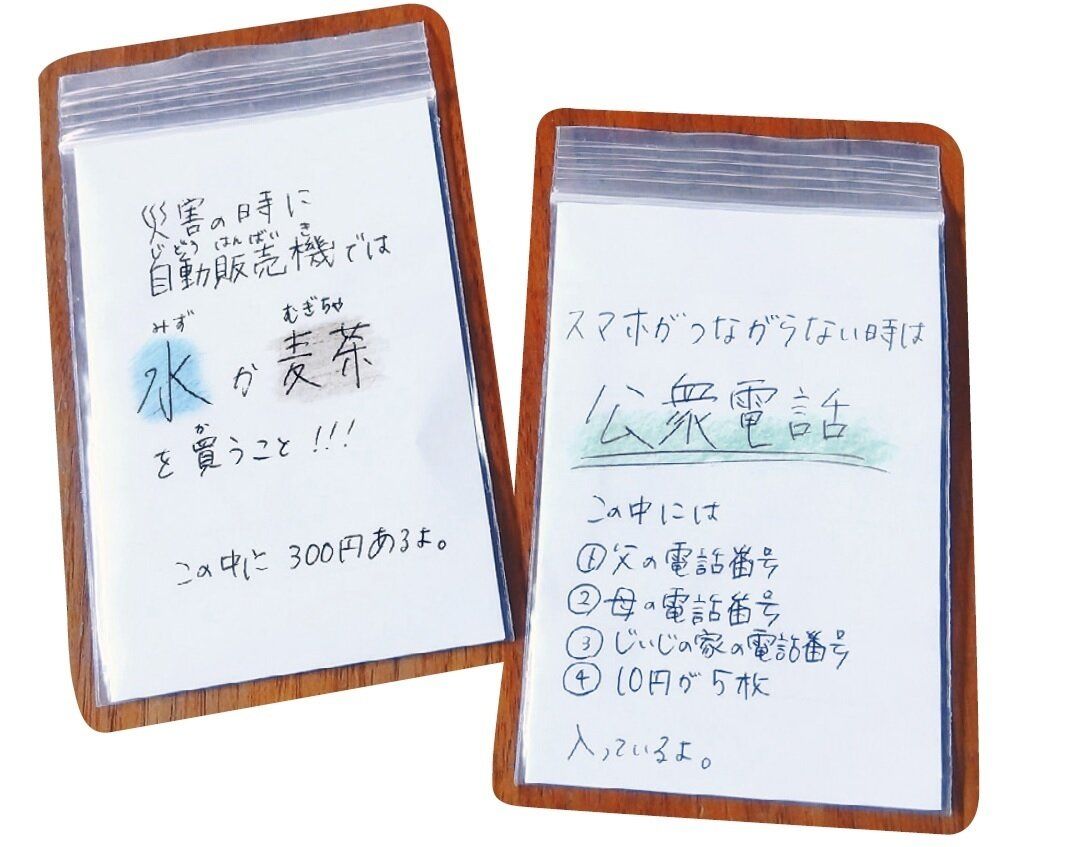 災害の時に
じどうはんばいき
自動販売機では
みず
むぎちゃ
水か麦茶
か
を買うこと!!!
この中に300円あるよ。
スマホがつながらない時は
公衆電話
この中には
①父の電話番号
②母の電話番号
③じいじの家の電話番号
④10円が5枚
入っているよ。